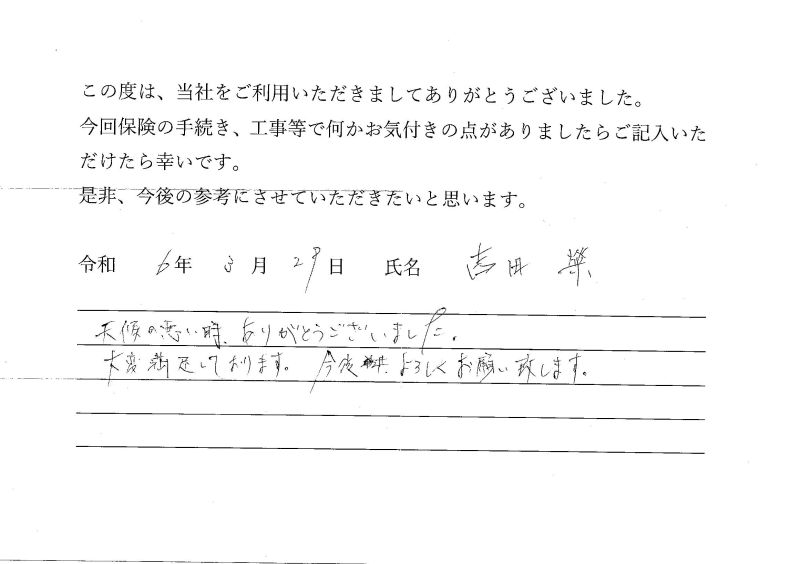 この度は、当社をご利用いただきましてありがとうございました。
今回保険の手続き、工事等で何かお気付きの点がありましたらご記入いた
だけたら幸いです。
是非、今後の参考にさせていただきたいと思います。
令和 6年 3月 29日 氏名 吉田
天候の悪い時、ありがとうございました。
大変満足しております。 今後共、よろしくお願い致します。